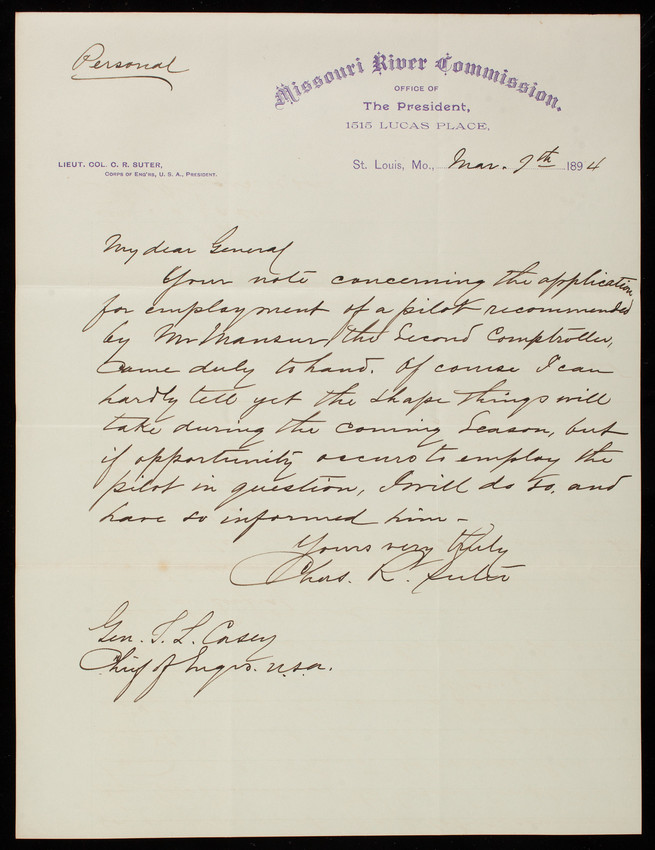 Personal
Missouri River Commission.
OFFICE OF
The President,
1515 LUCAS PLACE,
LIEUT. COL. C. R. SUTER,
CORPS OF ENG'RS, U. S. A., PRESIDENT.
St. Louis, Mo., Mar. 9th 1894
My dear General
Your note concerning the application
for employment of a pilot recommended
by Mr Mansur, the Second Comptroller,
came duly to hand. Of course I can
hardly tell yet the shape things will
take during the coming Season, but
if opportunity occurs to employ the
pilot in question, I will do so, and
have so informed him -
Yours very truly
Chas. R. Suter
Gen. T. L. Casey
Chief of Engrs. U.S.A.